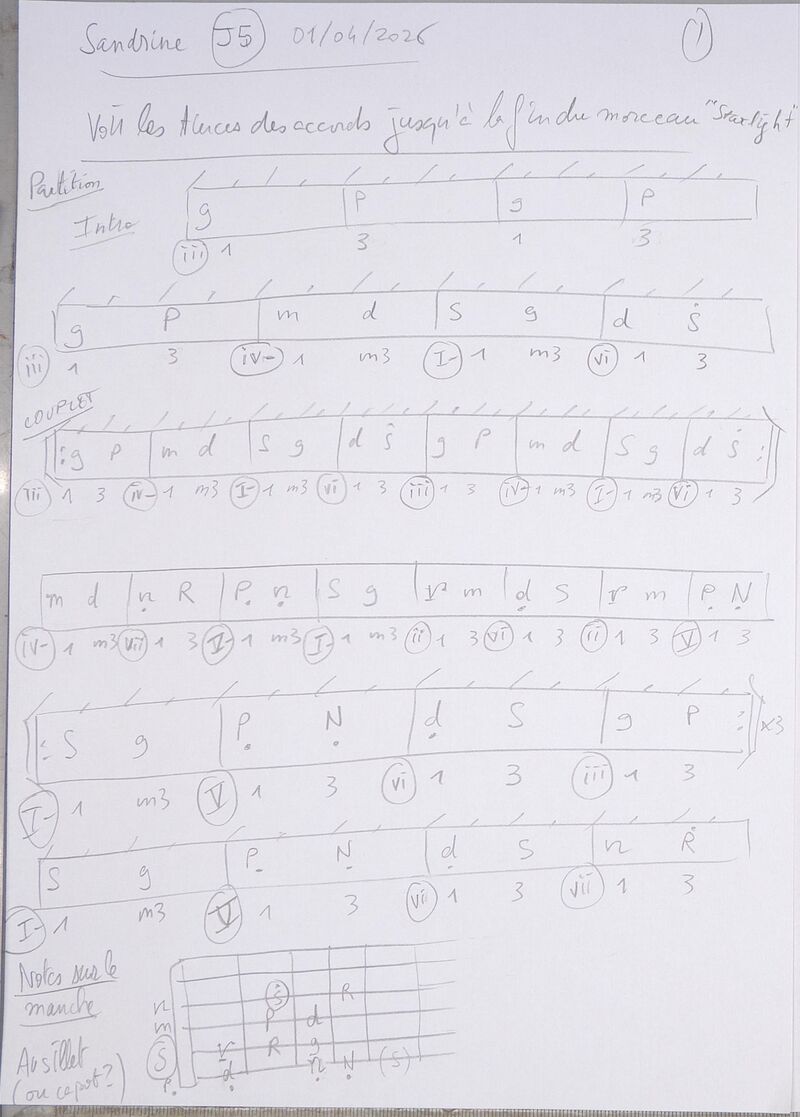 Sandrine J5 01/04/2026 1
Voir les tierces des accords jusqu'à la fin du morceau "Starlight"
Partition
Intro
g P g P
iii 1 3 1 3
g P m d S g d Ṡ
iii 1 3 iv- 1 m3 I- 1 m3 vi 1 3
COUPLET
g P m d S g d Ṡ g P m d S g d Ṡ
iii 1 3 iv- 1 m3 I- 1 m3 vi 1 3 iii 1 3 iv- 1 m3 I- 1 m3 vi 1 3
m d ṇ R P̣ ṇ S g r m ḍ S r m P̣ Ṇ
iv- 1 m3 vii 1 3 V- 1 m3 I- 1 m3 ii 1 3 vi 1 3 ii 1 3 V 1 3
S g P̣ Ṇ ḍ S g P x3
I- 1 m3 V 1 3 vi 1 3 iii 1 3
S g P̣ Ṇ ḍ S n Ṙ
I- 1 m3 V 1 3 vii 1 3 vii 1 3
Notes sur le
manche
Ṡ R
n
m P d
S r R g
P̣ ḍ ṇ Ṇ (S)
Au sillet
(ou capot?)